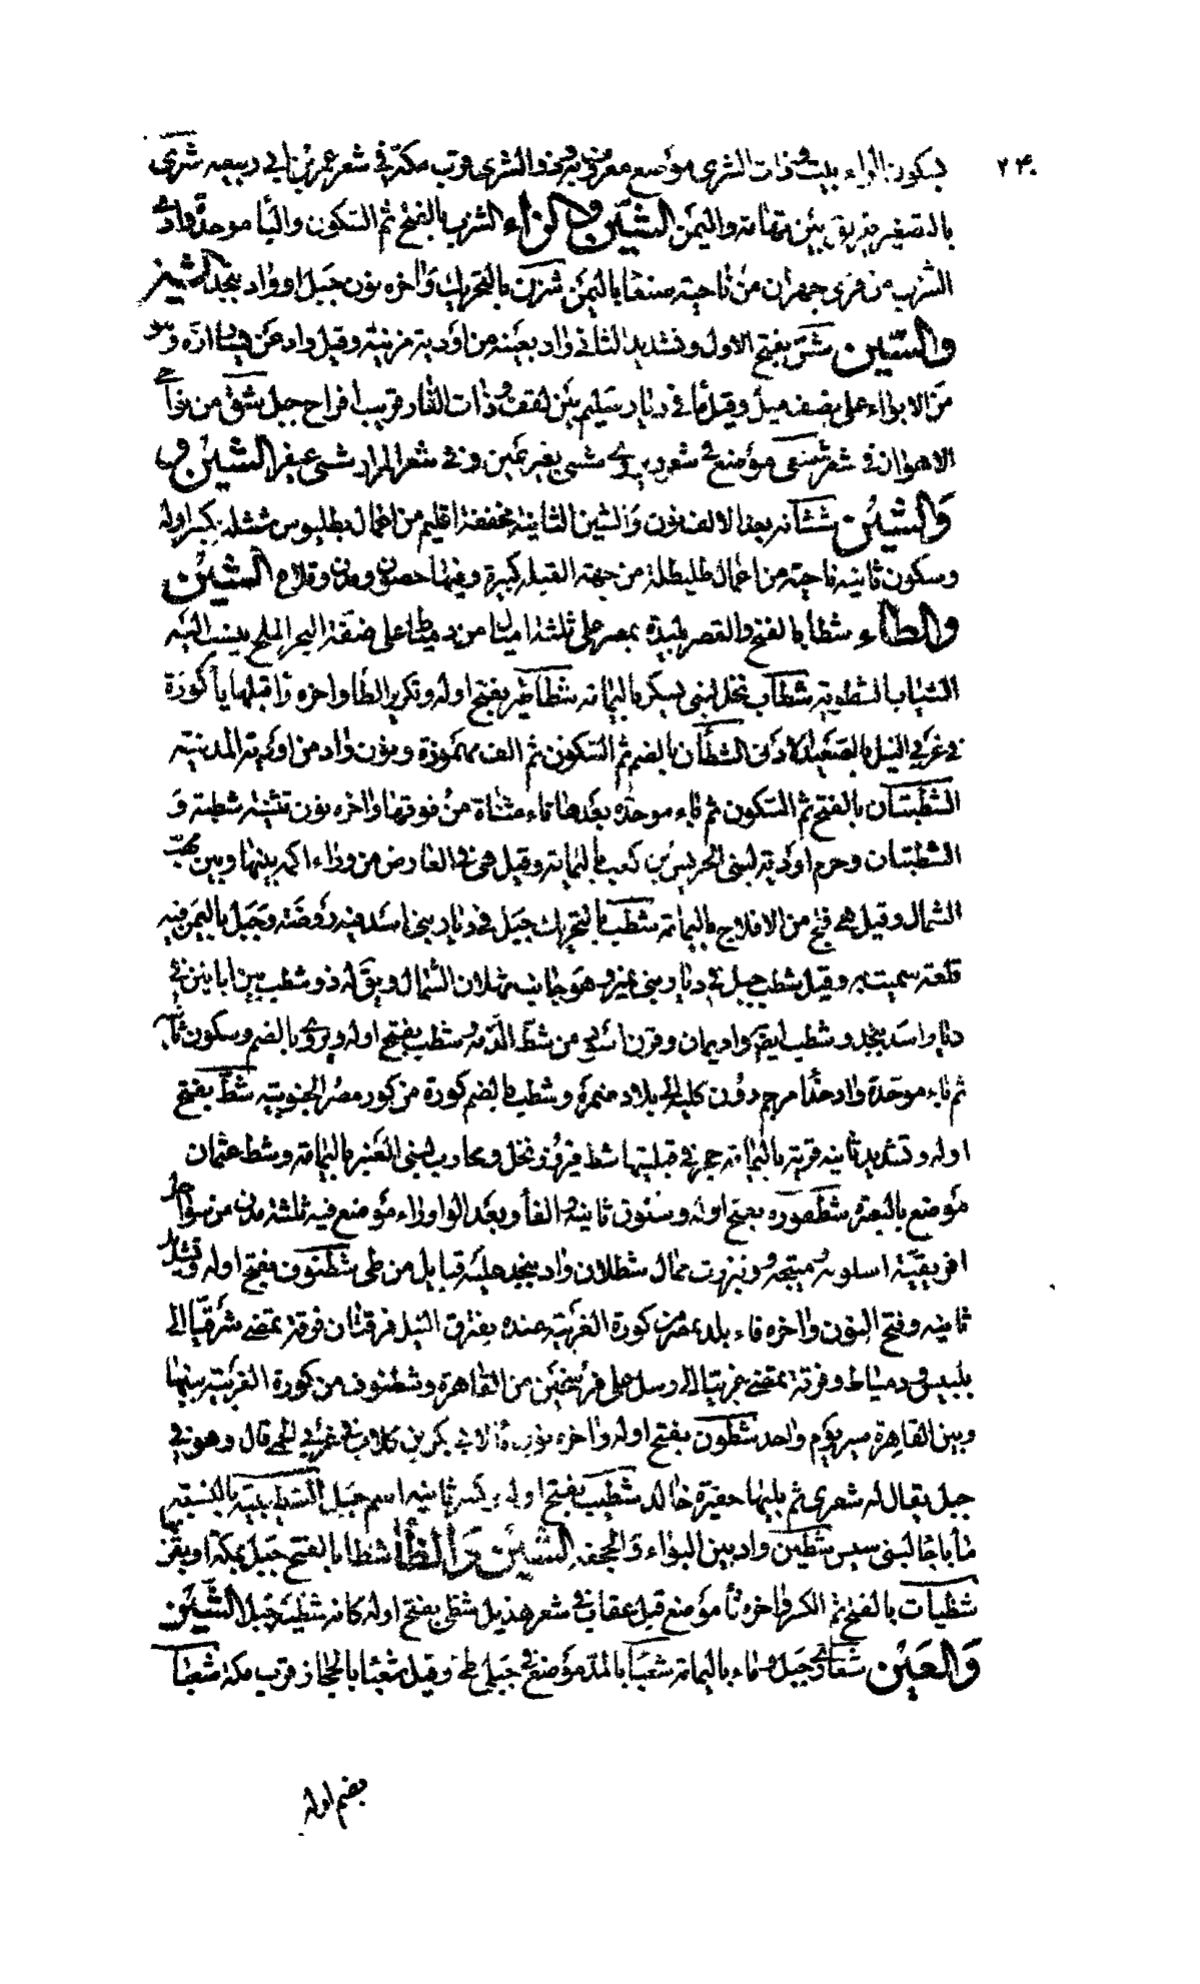 ٢٤٠
بسكون الراء بيت وذات الشرى موضع معروف قرب مكة في شعر عمر بن ابي ربيعه شرى
بالتصغير طريق بين تهامة واليمن الشين والزاء الشزب بالفتح ثم السكون والبا موحدة واد في
الشزب من قرى جهران من ناحية صنعا باليمن شزن بالتحريك واخره نون جبل او واد بنجد الشين
والسين شس بفتح الاول وتشديد الثاني واد بعينه من اودية مزينة وقيل واد عن يسار آره
من الابواء على نصف ميل وقيل ما في ديار سليم بين لقف وذات الغار قريب اقراح جبل شستق من نواحي
الاهواز في شعر شسعى موضع في شعر ويروى شسى بغير عين وفي شعر المرار شسى عبقر الشين
والشين ششانه بعد الالف نون والشين الثانية مخففة اقليم من اعمال بطليوس ششله بكسر اوله
وسكون ثانيه ناحية من اعمال طليطلة من جهة القبلة كبيرة وفيها حصون ومدن وقلاع الشين
والطاء شطا بالفتح والقصر بليدة بمصر على ثلثة اميال من دمياط على ضفة البحر الملح ينسب اليه
الثياب الشطوية شطاب نخل لبني يشكر باليمامة شطاطير بفتح اوله وتكرير الطا واخره را قبلها يا كورة
في غربي النيل بالصعيد الادنى الشطأن بالضم ثم السكون ثم الف مهموزة ونون واد من اودية المدينة
الشطبتان بالفتح ثم السكون ثم باء موحدة بعدها تاء مثناة من فوقها واخره نون تثنية شطبة و
الشطبتان وحرم اودية لبني الحريش بن كعب باليمامة وقيل هى في العارض من وراء اكمه بينها وبين مهب
الشمال وقيل هي فلج من الافلاج باليمامة شطب بالتحريك جبل في ديار بني اسد فيه روضة وجبل باليمن فيه
قلعة سميت به وقيل شطب جبل في ديار بني نمير وهو جانبه ثهلان الشمال ويقال له ذو شطب بين ابانين في
ديار اسد بنجد وشطب ايضا واد يمان شطب بفتح اوله ويروى بالضم وسكون ثانيه
ثم باء موحدة واد حذا مرجم دون كليه الى بلاد ضمرة وشطب بالضم كورة من كور مصر الجنوبية شط بفتح
اوله وتشديد ثانيه قرية باليمامة حجر في قبلتها شط فيروز نخل ومحارب لبني العنبر باليمامة وشط عثمان
موضع بالبصرة شطفوره بفتح اوله وسكون ثانية والفا وبعد الواو راء موضع فيه ثلثة مدن من سواحل
افريقية وبنزرت شطلان واد بنجد عليه قبايل من طي شطنوف بفتح اوله وتشديد
ثانيه وفتح النون واخره فاء بلد بمصر من كورة الغربية عنده يفترق النيل فرقتان فرقة تمضي شرقيا الى
بلبيس ودمياط وفرقة تمضي غربيا الى رسل على فرسخين من القاهرة وشطنوف من كورة الغربية بينها
وبين القاهرة مسير يوم واحد شطون بفتح اوله واخره نون ماء لابي بكر بن كلاب في غربي قال وهو في
جبل يقال له شعرى ثم يليها حفيرة خالد شطيب بفتح اوله وكسر ثانيه اسم جبل الشطيبية بالنسبة
ما باجا لبني سنبس شطين واد بين البواء والجحفه الشين والظا شظا بالفتح جبل بمكة او بقز
شظيات بالفتح ثم الكسر واخره تا موضع قيل عقاب في شعر هذيل شظى بفتح اوله كانه شظية جبل الشين
والعين شعارى جبل وماء باليمامة شعبا بالمد موضع في جبلي طئ وقيل شعثا بالحجاز قرب مكة شعبا
بضم اوله